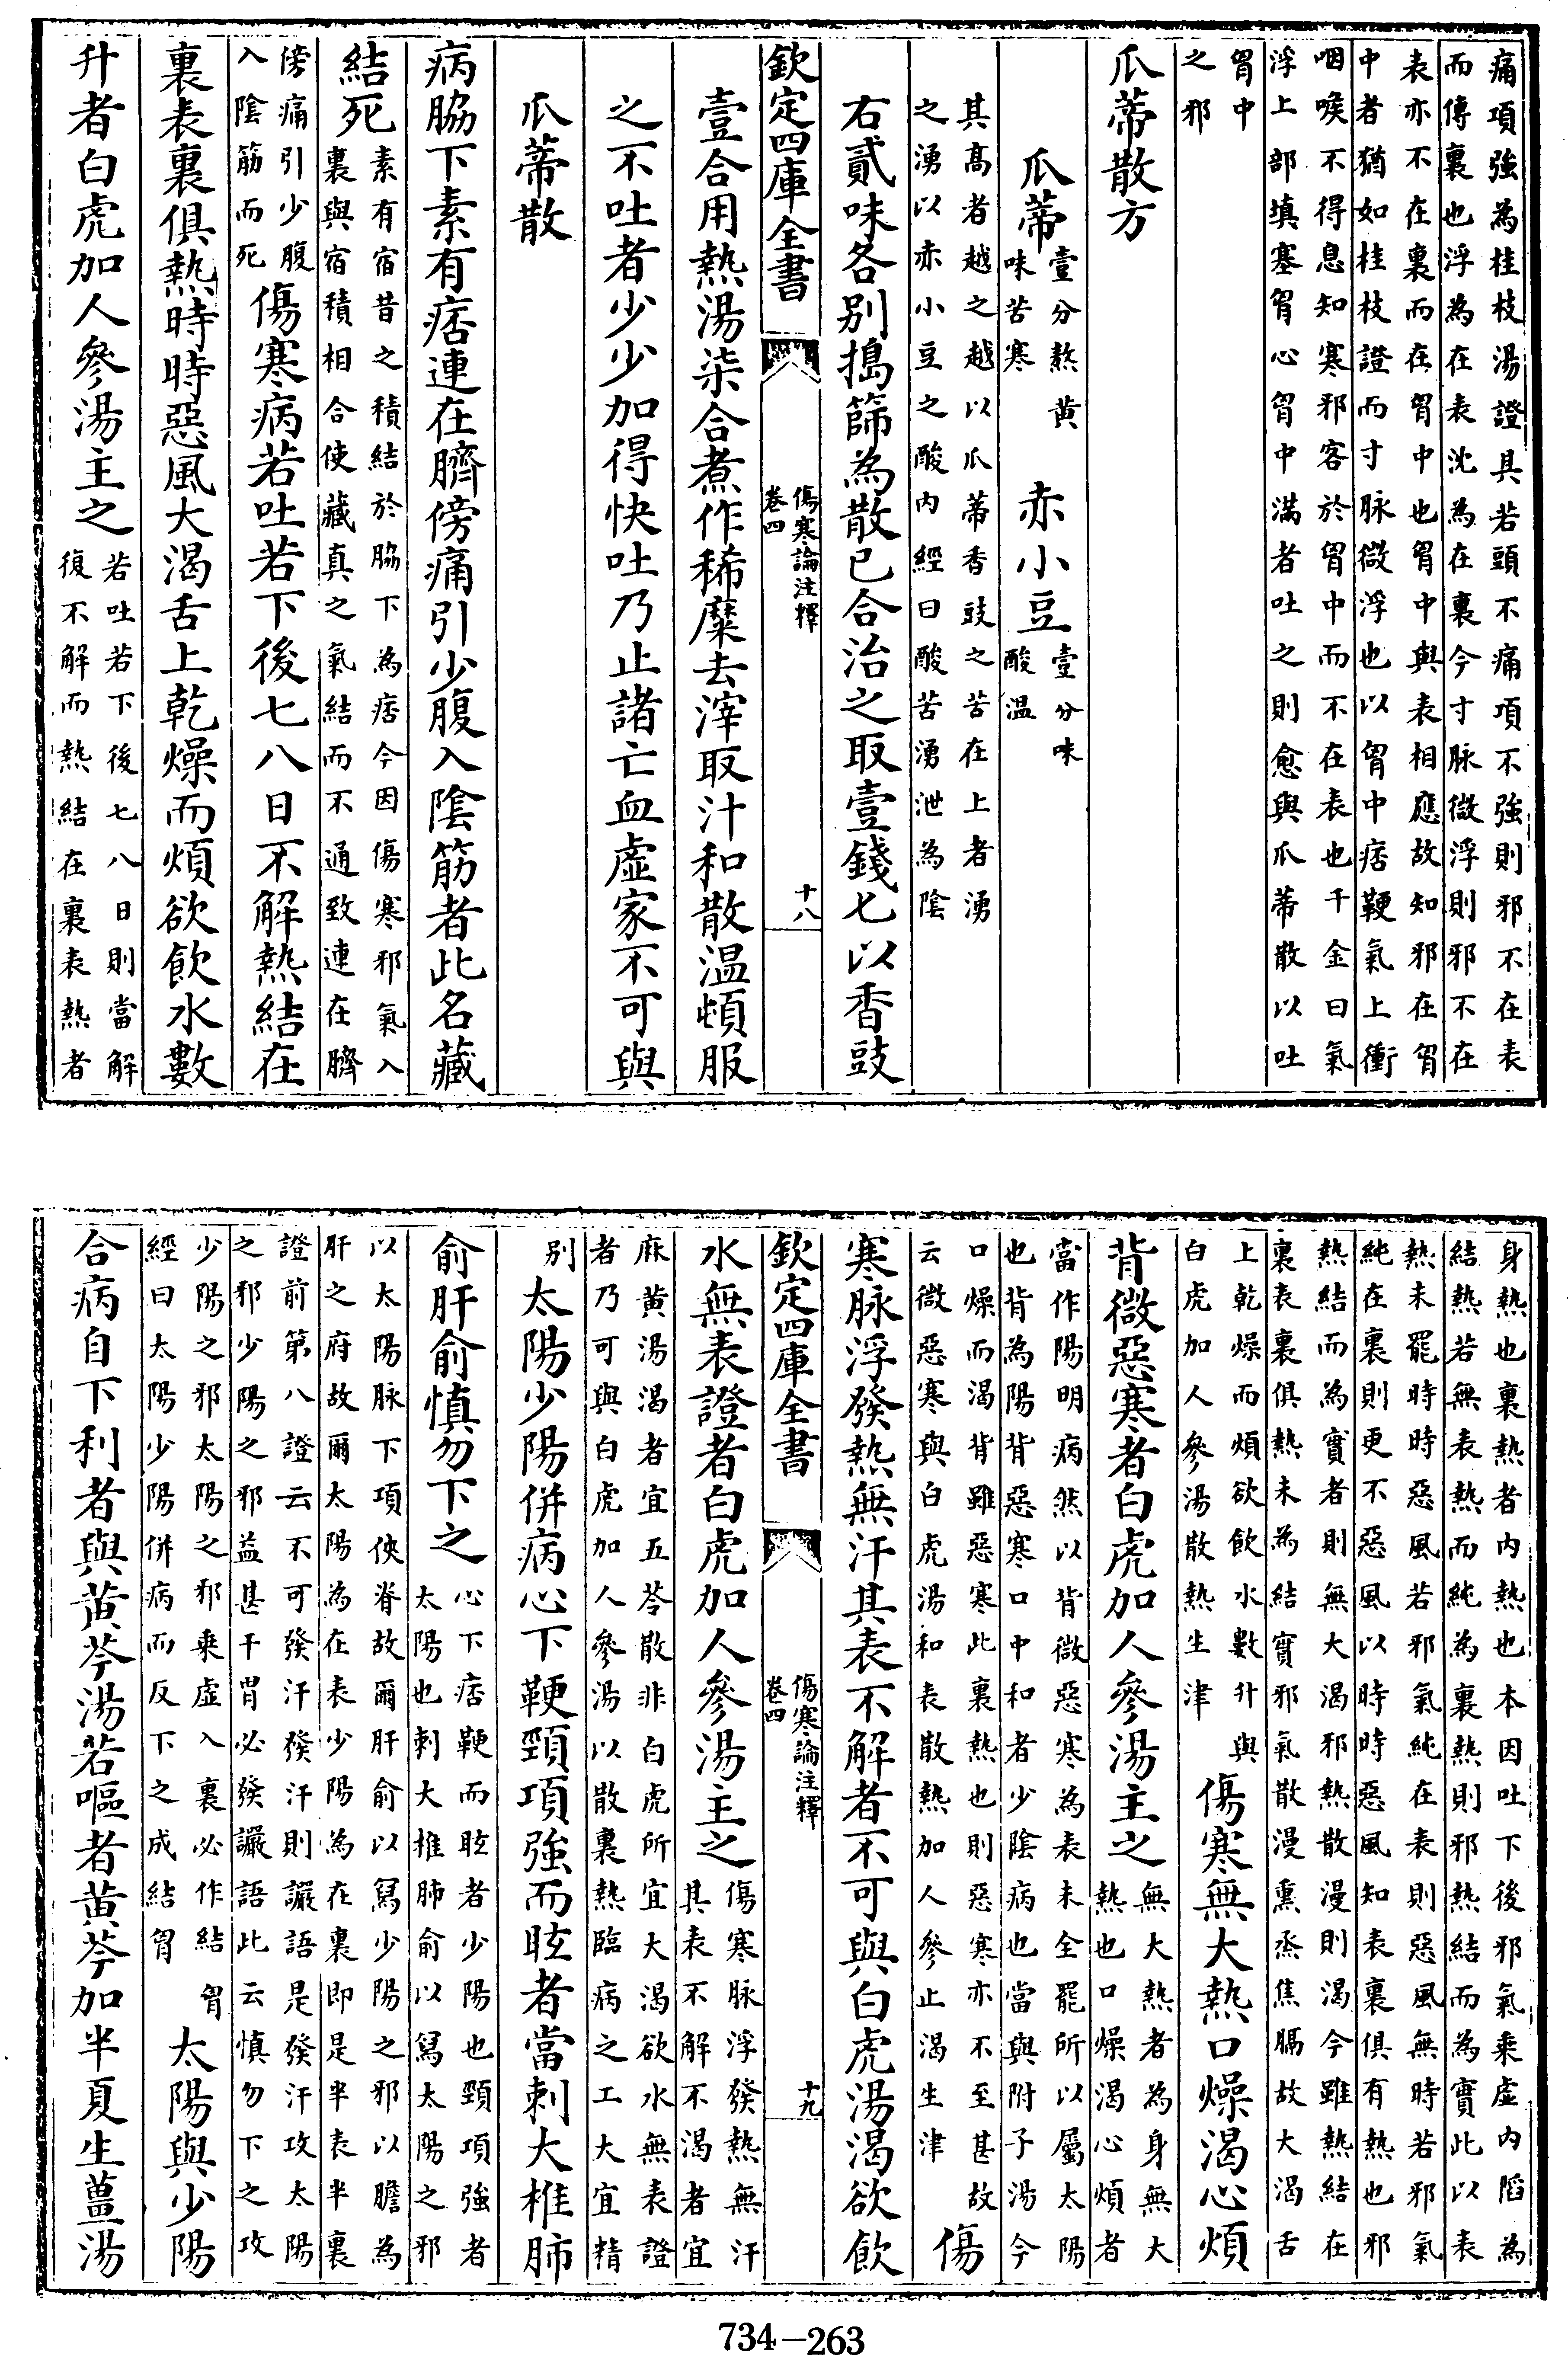 痛項強為桂枝湯證具若頭不痛項不強則邪不在表
而傳裏也浮為在表沈為在裏今寸脉微浮則邪不在
表亦不在裏而在胷中也胷中與表相應故知邪在胷
中者猶如桂枝證而寸脉微浮也以胷中痞鞕氣上衝
咽喉不得息知寒邪客於胷中而不在表也千金曰氣
浮上部填塞胷心胷中滿者吐之則愈與瓜蒂散以吐
胷中
之邪
瓜蒂散方
瓜蒂壹分熬黄
味苦寒
赤小豆壹分味
酸温
其髙者越之越以瓜蒂香豉之苦在上者湧
之湧以赤小豆之酸内經曰酸苦湧泄為陰
右貳味各别搗篩為散已合治之取壹錢匕以香豉
欽定四庫全書
傷寒論注釋
卷四
十八
壹合用熱湯柒合煮作稀糜去滓取汁和散温頓服
之不吐者少少加得快吐乃止諸亡血虚家不可與
瓜蒂散
病脇下素有痞連在臍傍痛引少腹入陰筋者此名藏
結死素有宿昔之積結於脇下為痞今因傷寒邪氣入
裏與宿積相合使藏真之氣結而不通致連在臍
傍痛引少腹
入陰筋而死傷寒病若吐若下後七八日不解熱結在
裏表裏俱熱時時惡風大渴舌上乾燥而煩欲飲水數
升者白虎加人參湯主之若吐若下後七八日則當解
復不解而熱結在裏表熱者
身熱也裏熱者内熱也本因吐下後邪氣乗虚内陷為
結熱若無表熱而純為裏熱則邪熱結而為實此以表
熱未罷時時惡風若邪氣純在表則惡風無時若邪氣
純在裏則更不惡風以時時惡風知表裏俱有熱也邪
熱結而為實者則無大渴邪熱散漫則渴今雖熱結在
裏表裏俱熱未為結實邪氣散漫熏烝焦膈故大渴舌
上乾燥而煩欲飲水數升與
白虎加人參湯散熱生津傷寒無大熱口燥渴心煩
背微惡寒者白虎加人參湯主之無大熱者為身無大
熱也口燥渴心煩者
當作陽明病然以背微惡寒為表未全罷所以屬太陽
也背為陽背惡寒口中和者少陰病也當與附子湯今
口燥而渴背雖惡寒此裏熱也則惡寒亦不至甚故
云微惡寒與白虎湯和表散熱加人參止渴生津傷
寒脉浮發熱無汗其表不解者不可與白虎湯渴欲飲
欽定四庫全書
傷寒論注釋
卷四
十九
水無表證者白虎加人參湯主之傷寒脉浮發熱無汗
其表不解不渴者宜
麻黄湯渴者宜五苓散非白虎所宜大渴欲水無表證
者乃可與白虎加人參湯以散裏熱臨病之工大宜精
别太陽少陽併病心下鞕頸項強而眩者當刺大椎肺
俞肝俞慎勿下之心下痞鞕而眩者少陽也頸項強者
太陽也刺大椎肺俞以㵼太陽之邪
以太陽脉下項俠脊故爾肝俞以㵼少陽之邪以膽為
肝之府故爾太陽為在表少陽為在裏即是半表半裏
證前第八證云不可發汗發汗則讝語是發汗攻太陽
之邪少陽之邪益甚干胃必發讝語此云慎勿下之攻
少陽之邪太陽之邪乗虚入裏必作結胷
經曰太陽少陽併病而反下之成結胷太陽與少陽
合病自下利者與黄芩湯若嘔者黄芩加半夏生薑湯
734-263